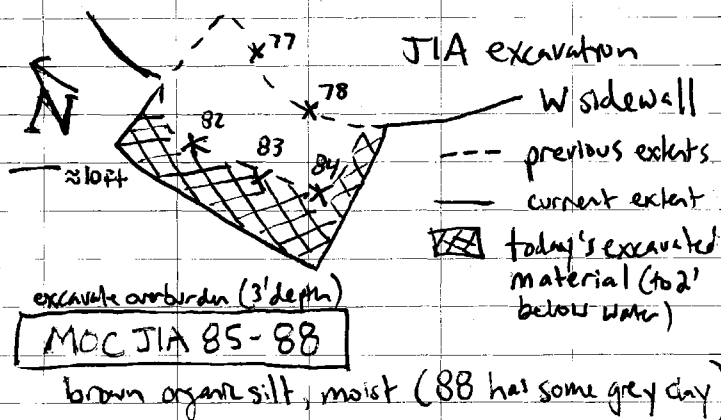 77
JIA excavation
W sidewall
78
N
82
83
84
--- previous extents
≈10ft
— current extent
today's excavated
material (to 2'
below water)
excavate overburden (3' depth)
MOC JIA 85-88
brown organic silt, moist (88 has some grey clay)